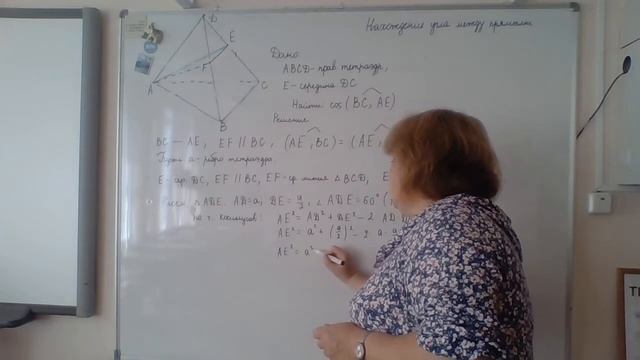 Нахождение угла между прямыми
D
E
F
A
C
B
Дано:
ABCD - прав тетраэдр,
E - середина DC
Найти cos (BC, AE)
Решение
BC — AE, EF || BC, (AE, BC) = (AE,
Пусть a - ребро тетраэдра.
E - сер. DC, EF || BC, EF = ср линия △ BCD, E
Рассм △ ADE. AD = a, DE = a/2, ∠ ADE = 60° (
по т. косинусов: AE² = AD² + DE² - 2 AD
AE² = a² + (a/2)² - 2 a · a
AE² = a²